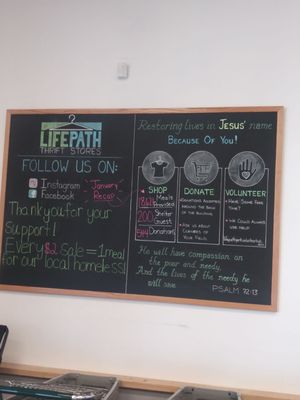 LIFEPATH
THRIFT STORES
FOLLOW US ON:
Instagram
Facebook
January
Recap
Thank you for your
support!
Every $2 Sale = 1 meal
for our local homeless!
Restoring lives in Jesus' name
Because Of You!
SHOP
Meals
Provided
200
Shelter
Guest
Donations
DONATE
Donations Accepted
Around the Back
of the Building
Ask us about
VOLUNTEER
Have Some Free
Time?
We Could Always
Use Help!
He will have compassion on
the poor and needy,
And the lives of the needy he
will save.
PSALM 72:13